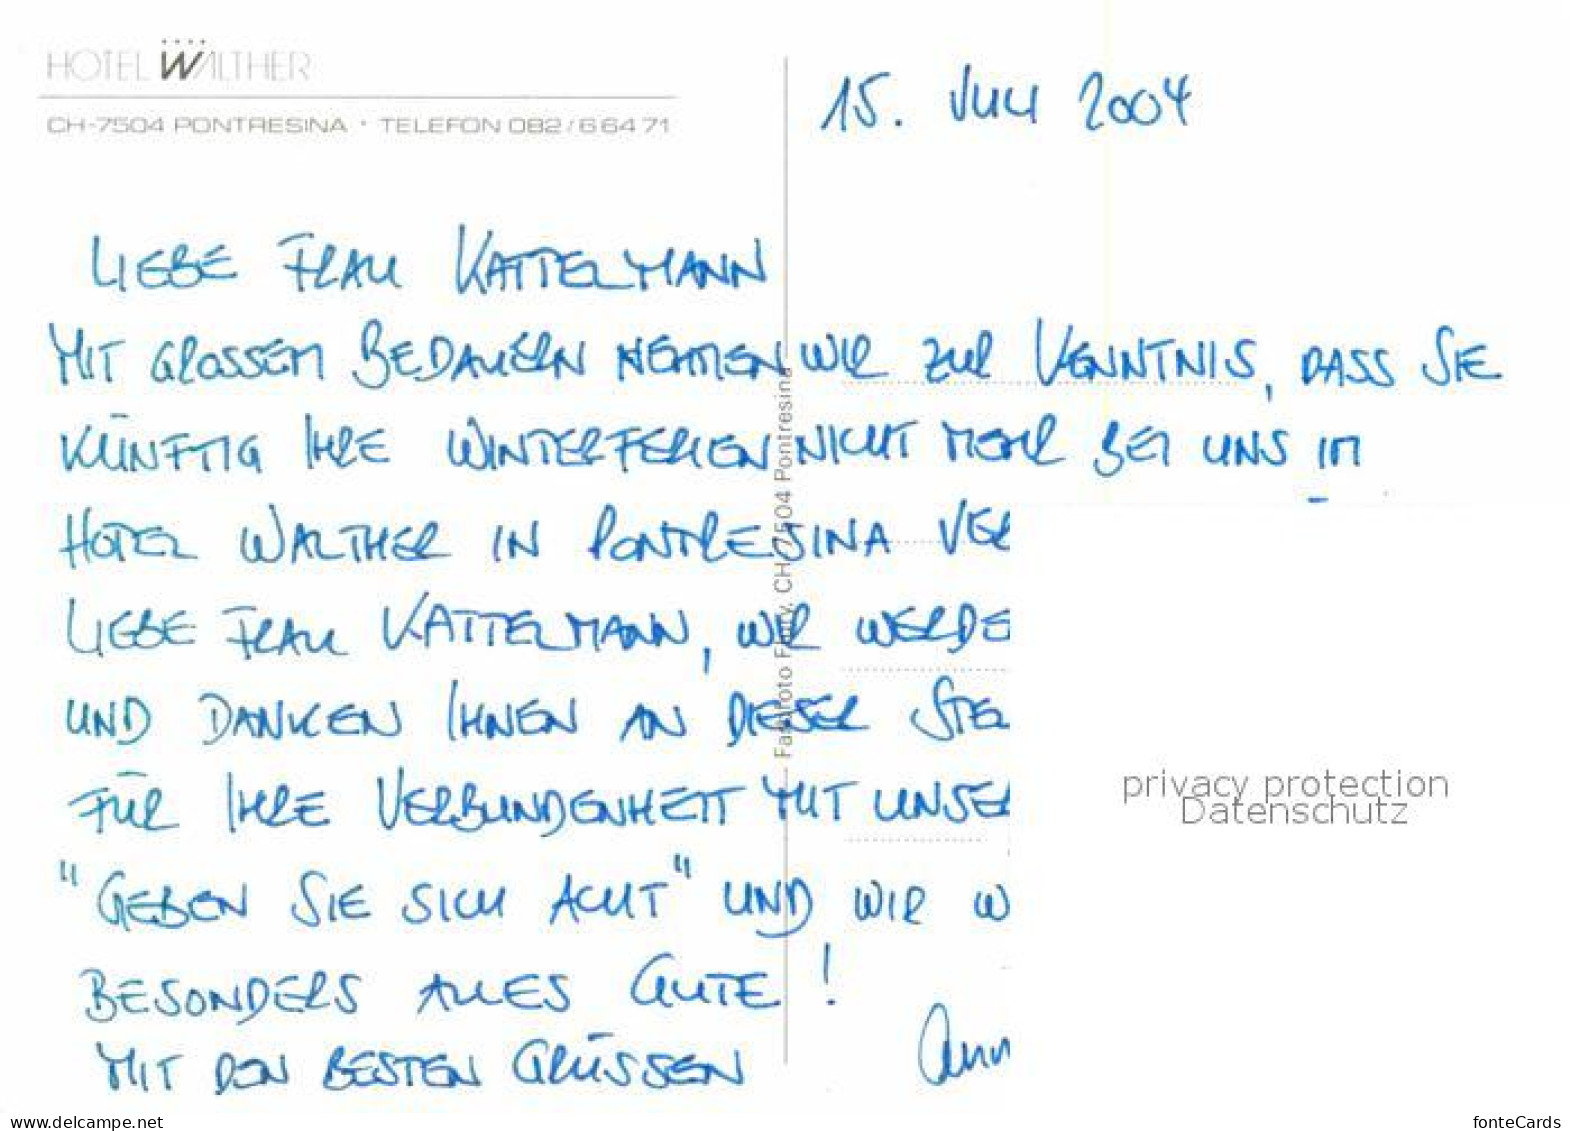 HOTEL WALTHER
CH-7504 PONTRESINA · TELEFON 082/6 64 71
15. JULI 2004
LIEBE FRAU KATTELMANN
MIT GROSSEM BEDAUERN NEHMEN WIR ZUR KENNTNIS, DASS SIE
KÜNFTIG IHRE WINTERFERIEN NICHT MEHR BEI UNS IM
HOTEL WALTHER IN PONTRESINA VER
LIEBE FRAU KATTELMANN, WIR WERDE
UND DANKEN IHNEN AN DIESER STEL
FÜR IHRE VERBUNDENHEIT MIT UNSER
"GEBEN SIE SICH ACHT" UND WIR W
BESONDERS ALLES GUTE!
MIT DEN BESTEN GRÜSSEN
Ann
CH-7504 Pontresina
privacy protection
Datenschutz
www.delcampe.net
fonteCards